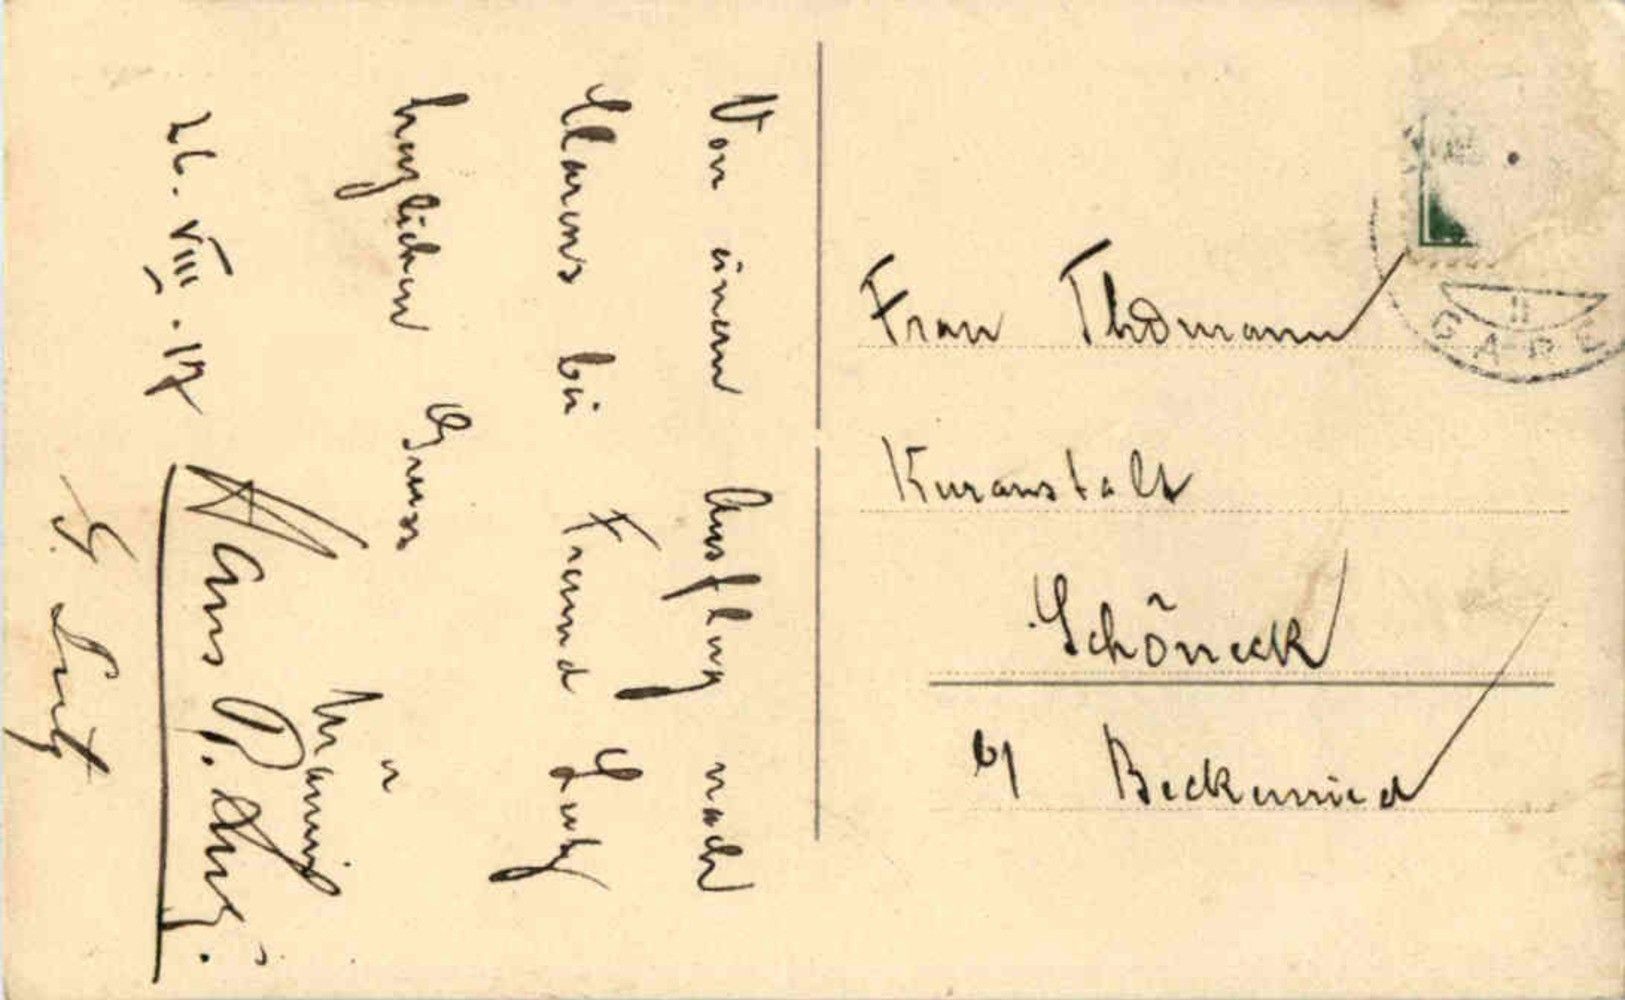 Von einem Ausflug nach
Clarens bei Freund Lutz
herzlichen Gruss
u
26. VIII. 17
Hans P.
G. Lutz
Frau Thomann
Kuranstalt
Schöneck
b/ Beckenried
GARE
II